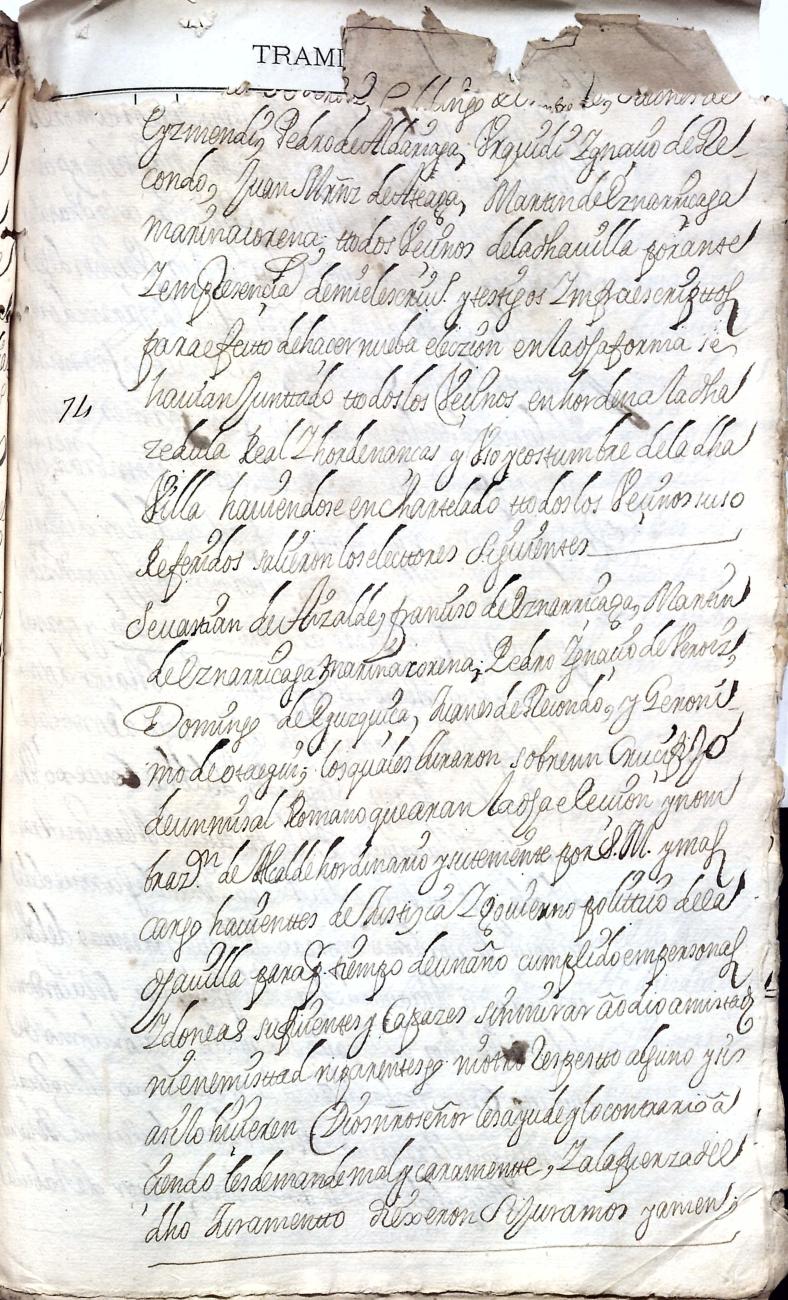 TRAMI
Eyzmendi, Pedro de Aldariaga, Urquidi Ygnacio de Re-
condo, Juan Mrñz de Ateaga, Martin de Eznarriçaga
marinacorena, ttodos Vecinos de la dha uilla por ante
Z en presencia de mi el escriu.º y testigos Ynfraescripttos
para efectto de hacer nueba elezion en la dha forma se
hauian Junttado ttodos los Vecinos en horden a la dha
74
zedula Real Z hordenancas y Vso y costumbre de la dha
Villa hauiendose en Chantelado ttodos los Vecinos suso
Referidos salieron los electtores Siguientes
Seuastian de Alizalde, franco de Eznarriçaga, Martin
de Eznarriçaga marinacorena, Pedro Ygnacio de Veroiz,
Domingo de Eguzquiça, Juanes de Recondo, y Geroni-
mo de otaegui, los quales Juraron sobre un Crucifixo
de un misal Romano que aran la dha eleccion y nom
braz.on de Alcalde hordinario y su teniente por S. M. y mas
cargo hauienttes de Justiçia Z gouierno polittico de la
dha uilla para el tiempo de un año cumplido en personas
Ydoneas sufiçientes y Capazes sin mirar a odio amistad
ni enemisttad ni parentesgo ni otro Respectto alguno y si
asi lo hiçieren Dios nro señor les ayude y lo contrario a
ciendo les demande mal y caramente, Z a la fuerza del
dho Juramentto dixeron Si Juramos y amen